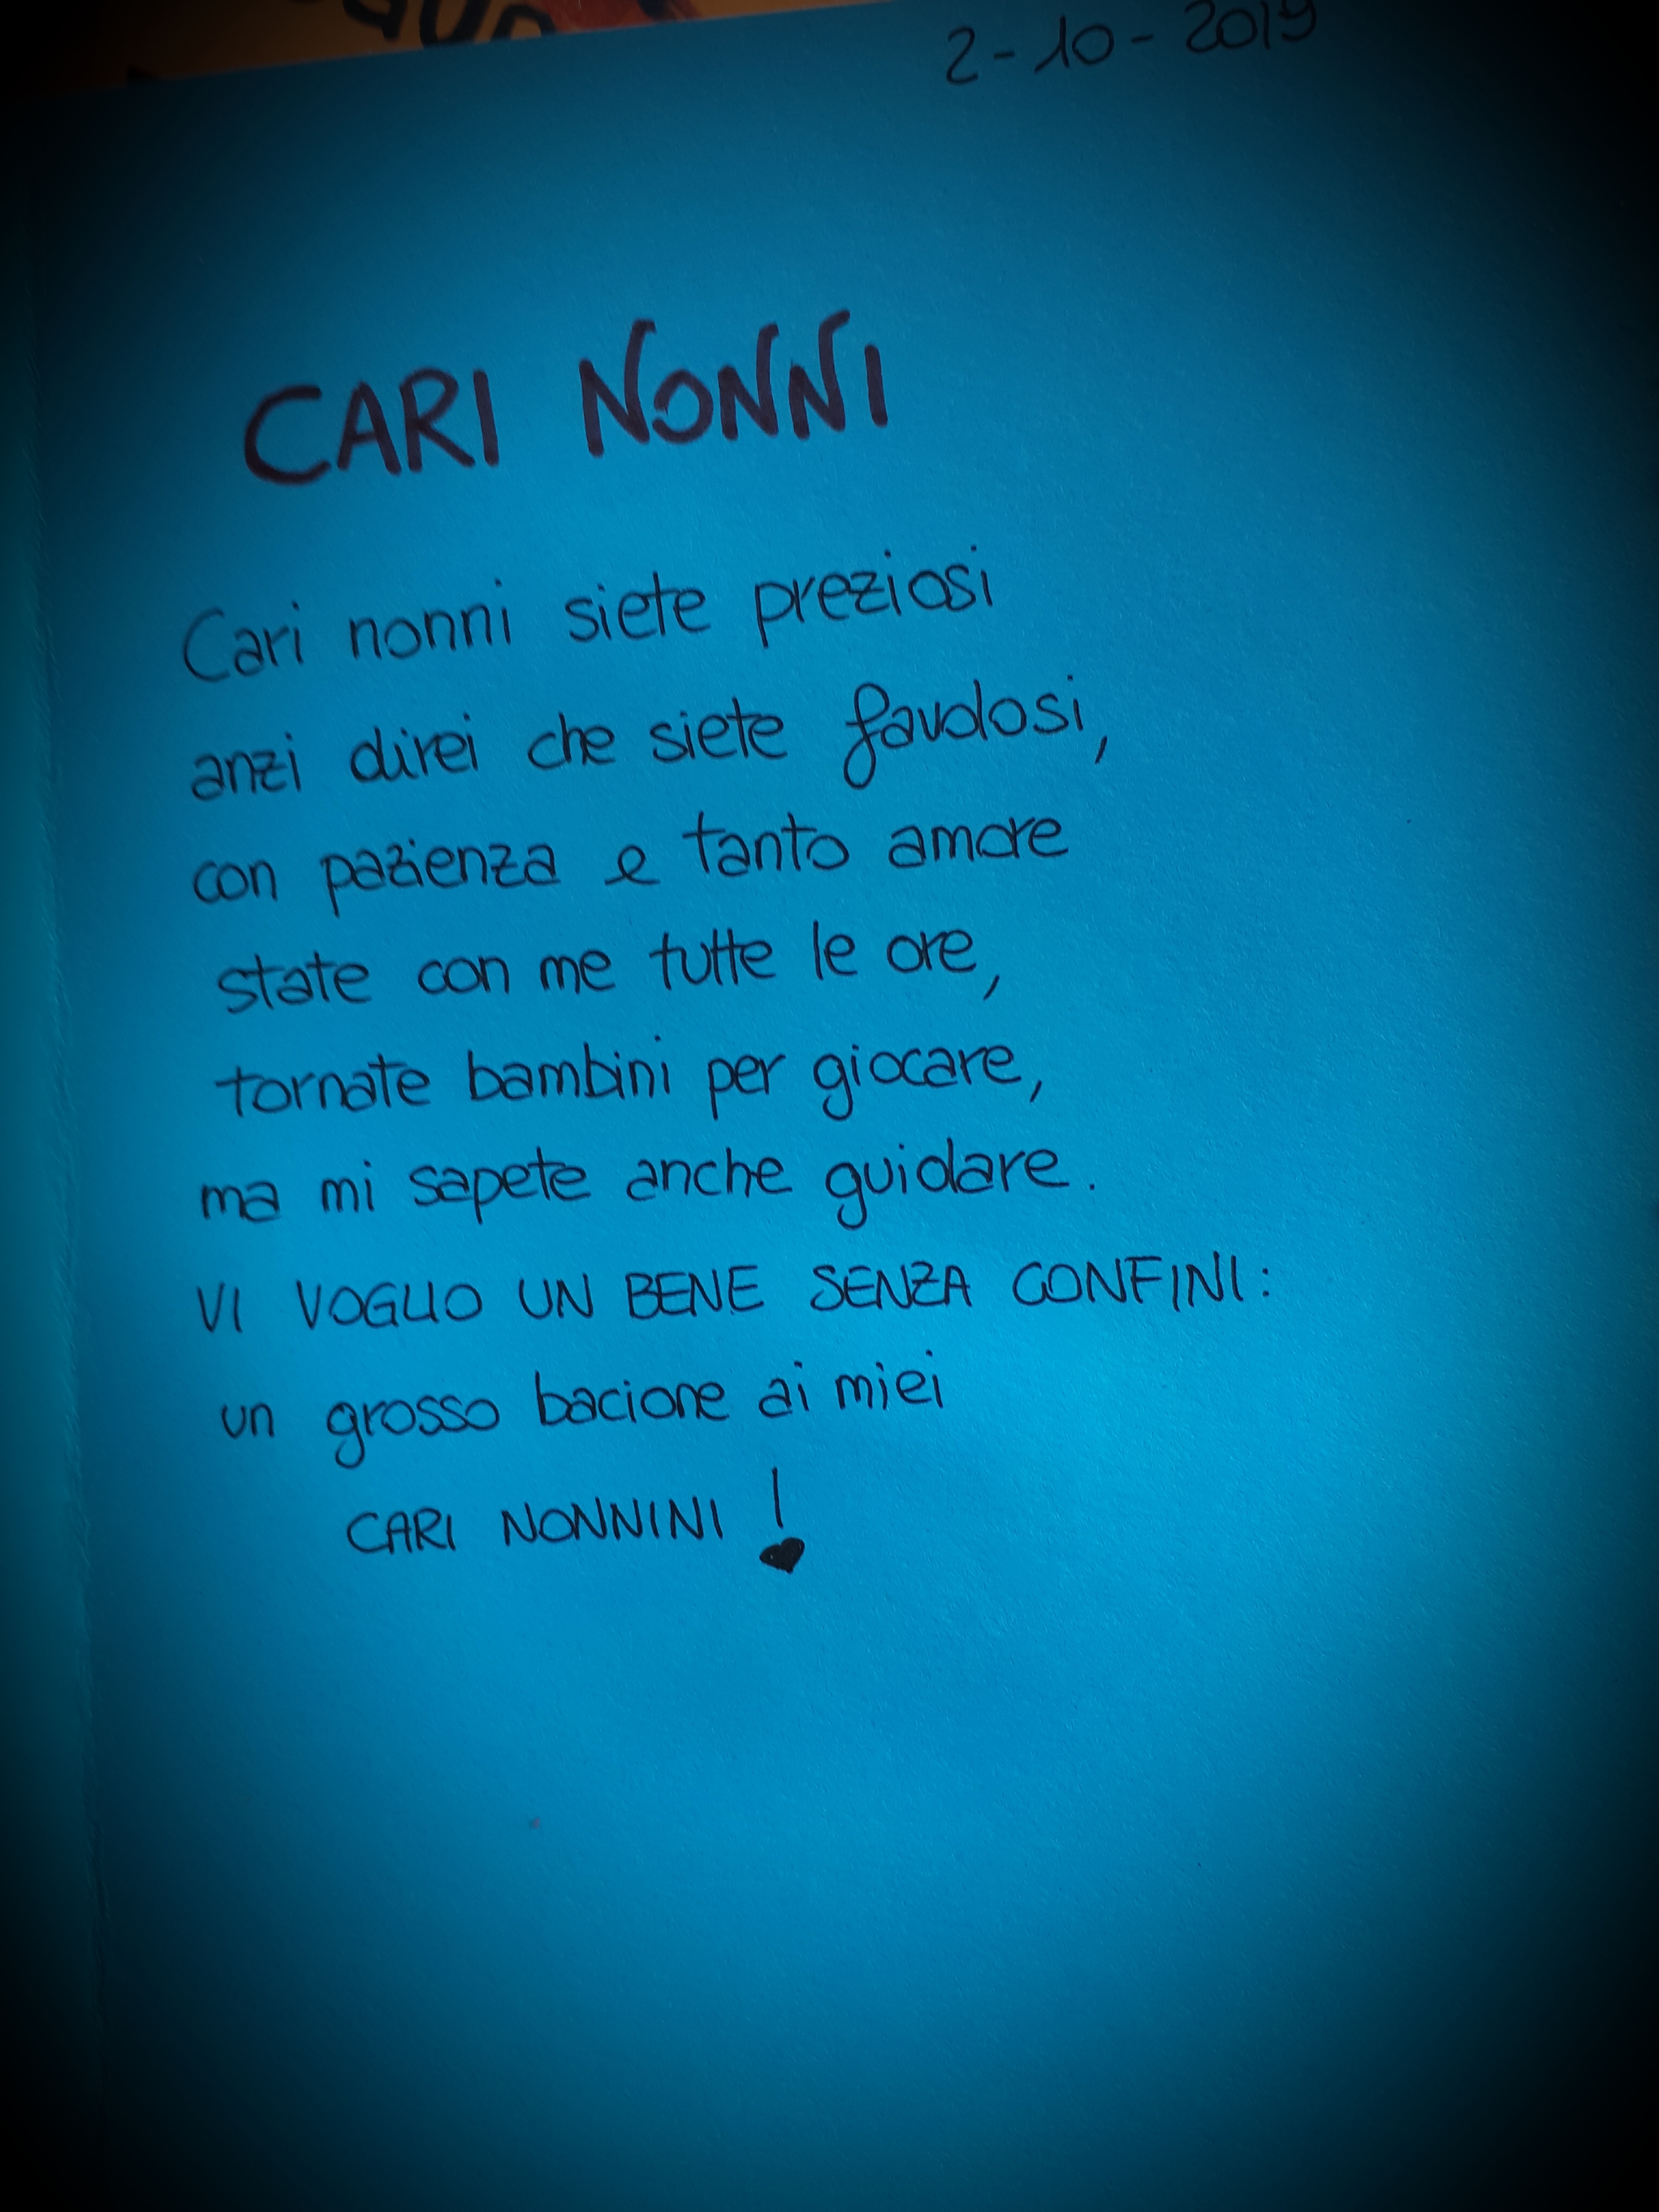 2-10-2019
CARI NONNI
Cari nonni siete preziosi
anzi direi che siete favolosi,
con pazienza e tanto amore
state con me tutte le ore,
tornate bambini per giocare,
ma mi sapete anche guidare.
VI VOGLIO UN BENE SENZA CONFINI:
un grosso bacione ai miei
CARI NONNINI !